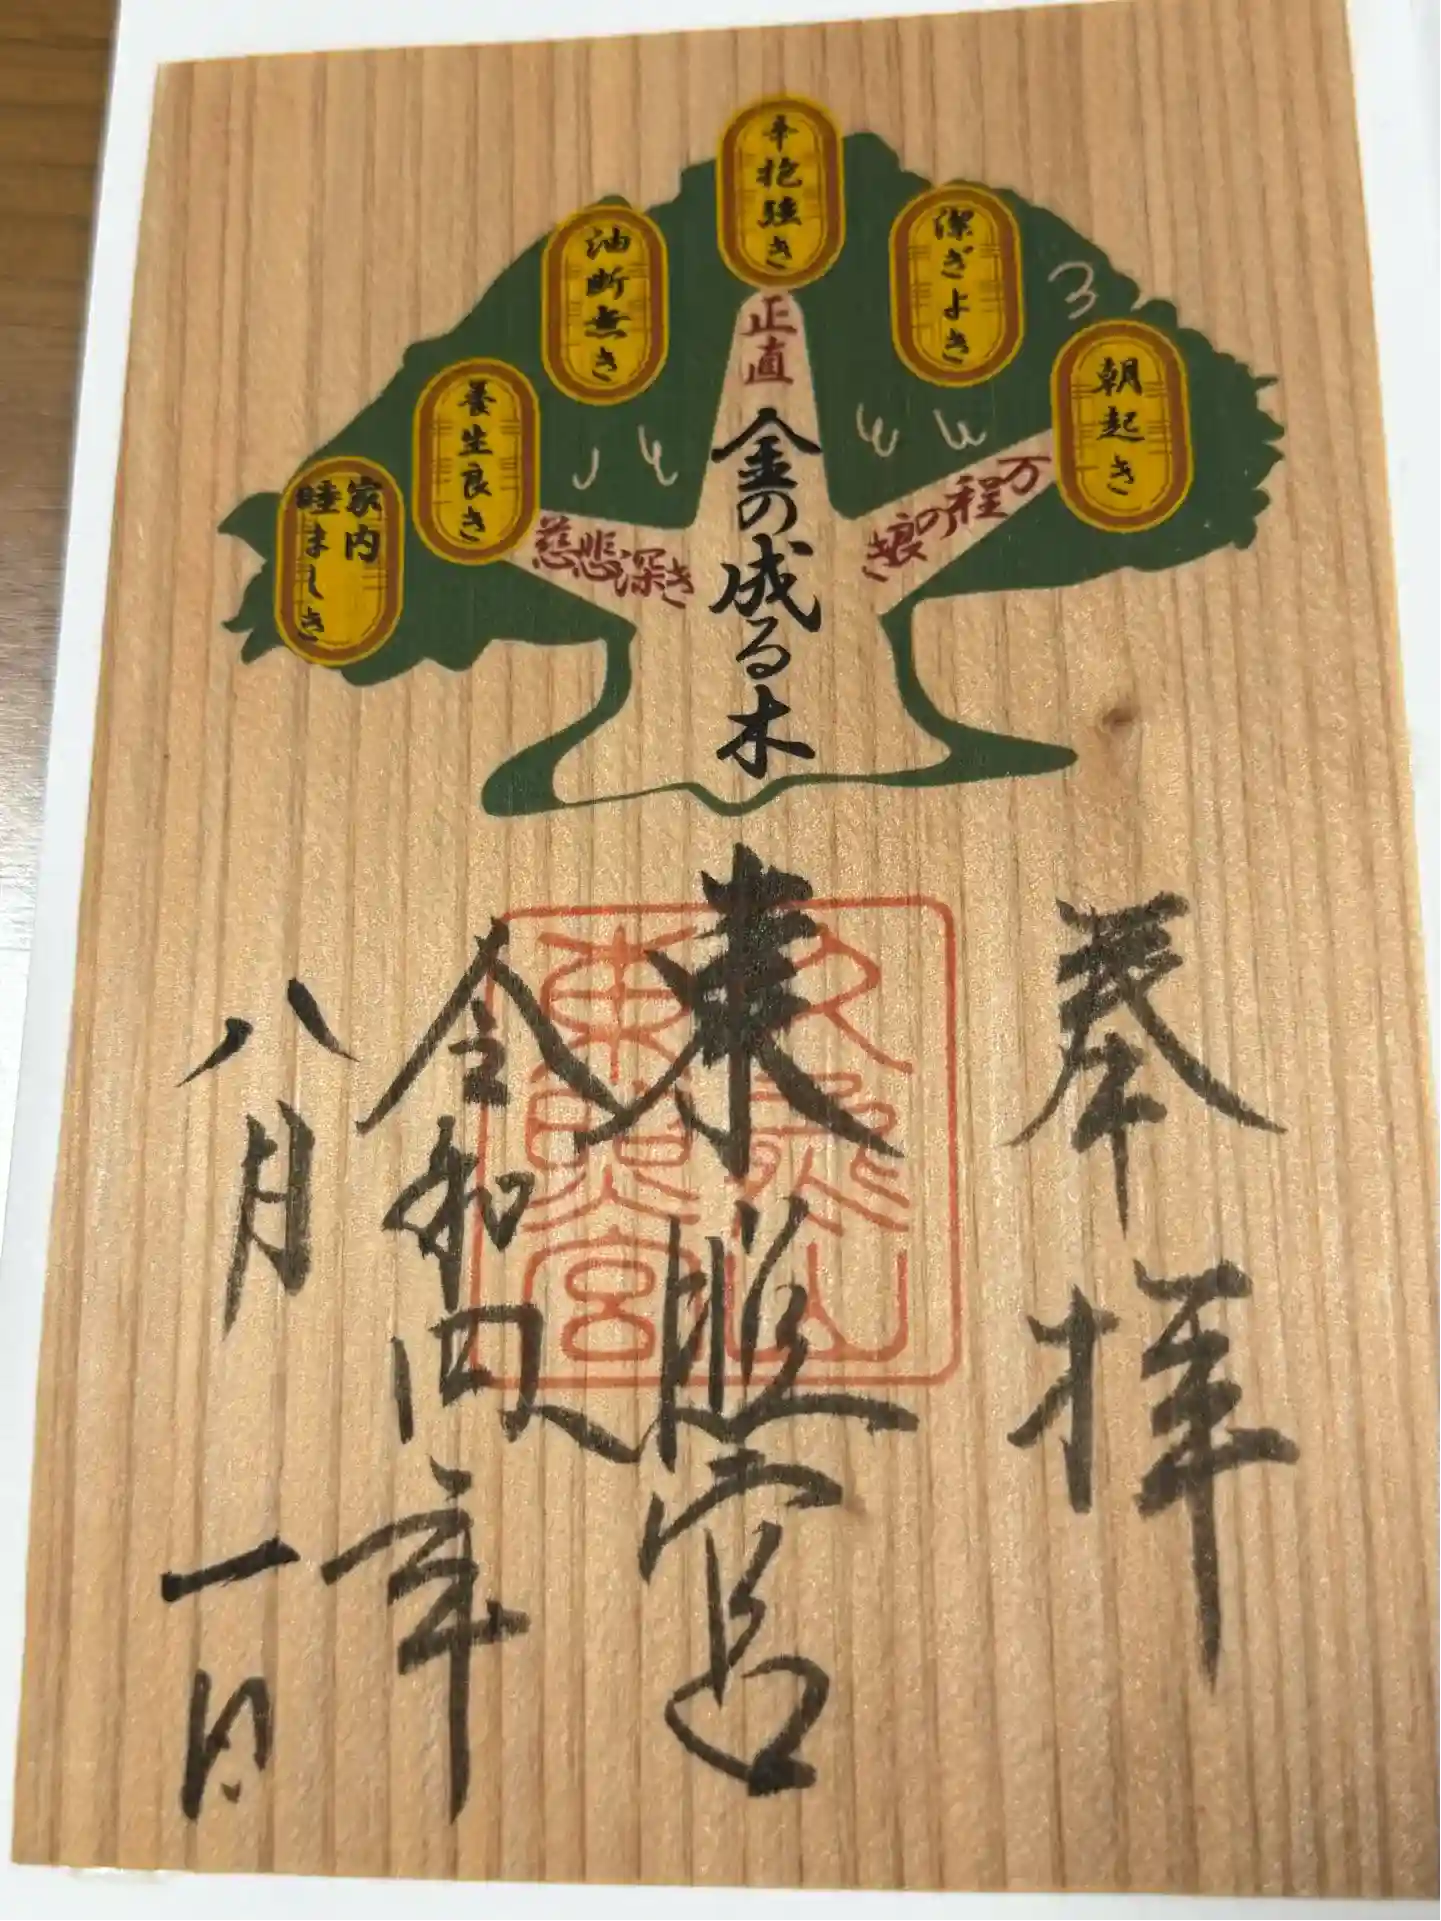 朝起き
潔ぎよき
辛抱強き
油断無き
養生良き
家内
睦ましき
万程の良き
正直
慈悲深き
金の成る木
奉拝
東照宮
久能山
東照宮
令和四年
八月一日